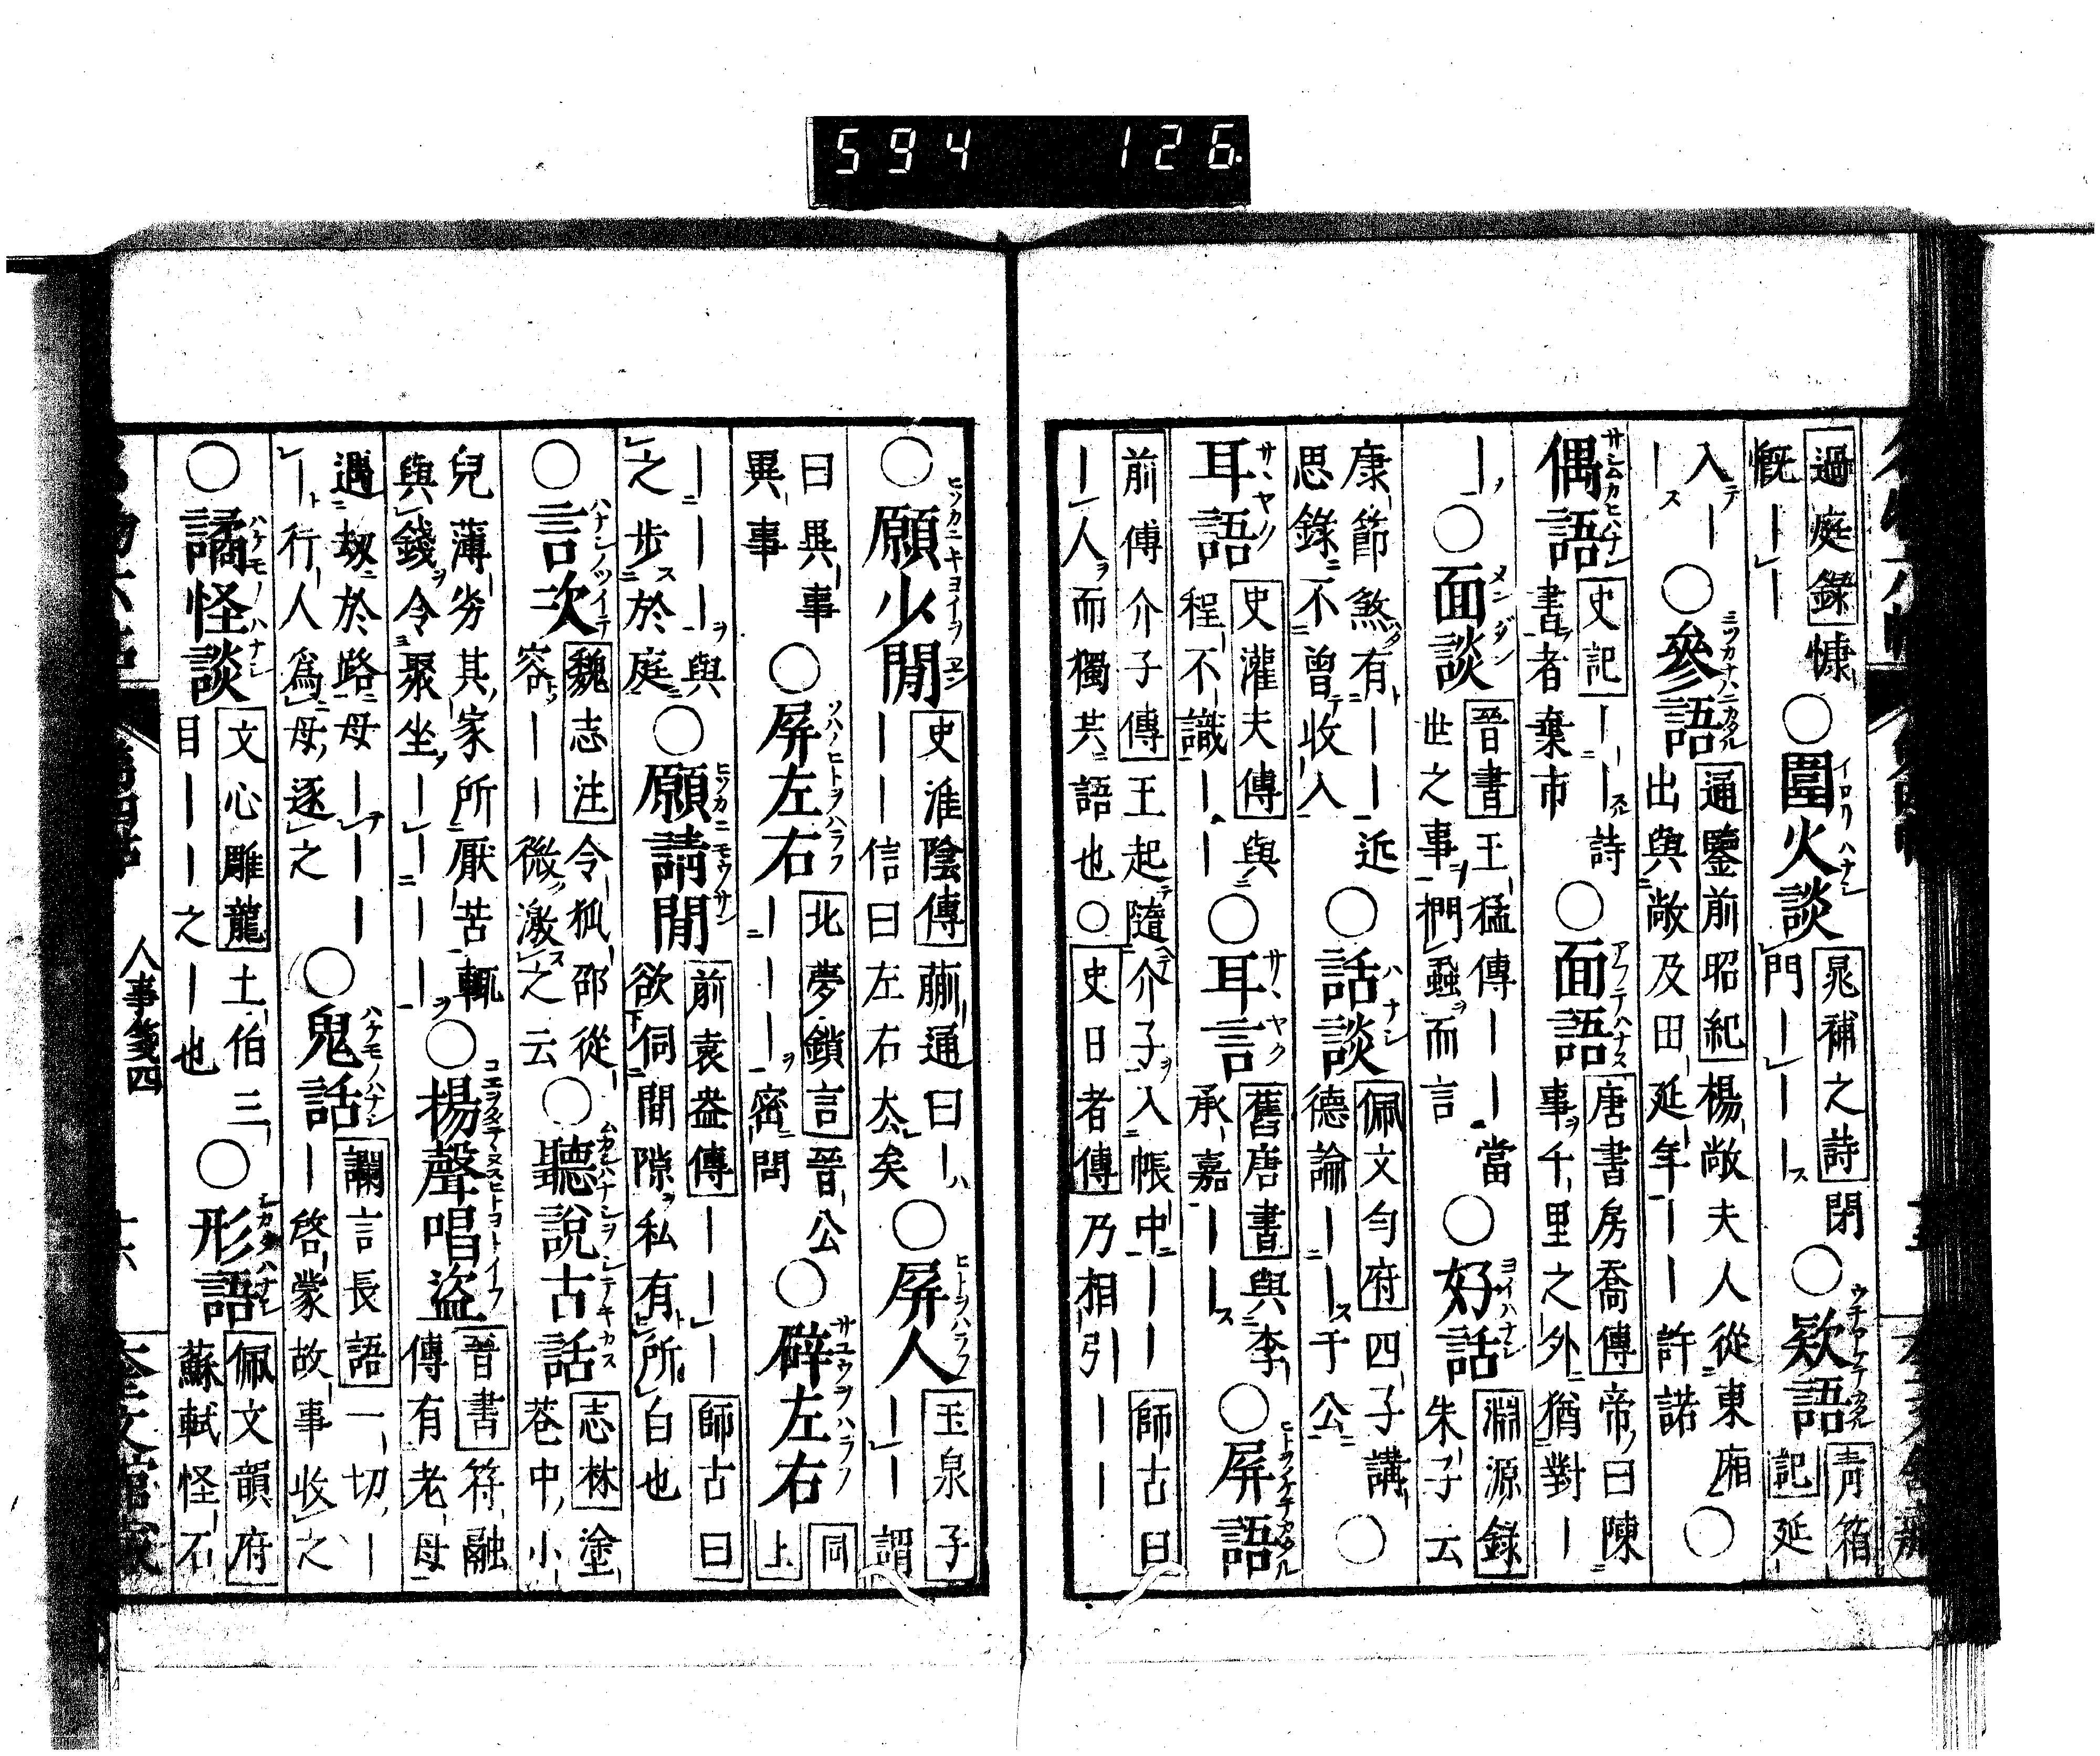 594 126
過庭録慷慨｜｜○圍火談晁補之詩閉門｜｜｜○欵語青箱記延
入｜｜○參語通鑒前昭紀楊敞夫人從東廂出與敞及田延年｜｜許諾○
偶語史記｜｜詩書者棄市○面語唐書房喬傳帝曰陳事千里之外猶對｜
｜○面談晉書王猛傳｜｜當世之事捫蝨而言○好話淵源録朱子云
康節煞有｜｜近思錄不曾收入○話談佩文匀府四子講德論｜｜于公○
耳語史灌夫傳與程不識｜｜○耳言舊唐書與李承嘉｜｜○屏語
前傅介子傳王起隨介子入帳中｜｜師古曰｜人而獨共語也○史日者傳乃相引｜｜
○願少閒史淮陰傳蒯通曰｜｜｜信曰左右太矣○屏人玉泉子｜｜謂
曰異事異事○屏左右北夢鎖言晉公｜｜｜密問○辟左右同上
｜｜｜與之步於庭○願請閒前袁盎傳｜｜｜師古曰欲伺間隙私有所白也
○言次魏志注令狐邵從容｜｜微激之云○聽說古話志林塗巷中小
兒薄劣其家所厭苦輒與錢令聚坐｜｜｜｜○揚聲唱盜晉書符融傳有老母
遇刼於路母｜｜｜｜行人爲母逐之○鬼話讕言長語一切｜｜啓蒙故事收之
○譎怪談文心雕龍土伯三目｜｜之｜也○形語佩文韻府蘇軾怪石
人事箋四